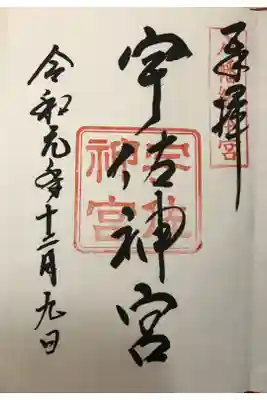 奉拝
宇佐神宮
宇佐神宮
令和元年十二月九日